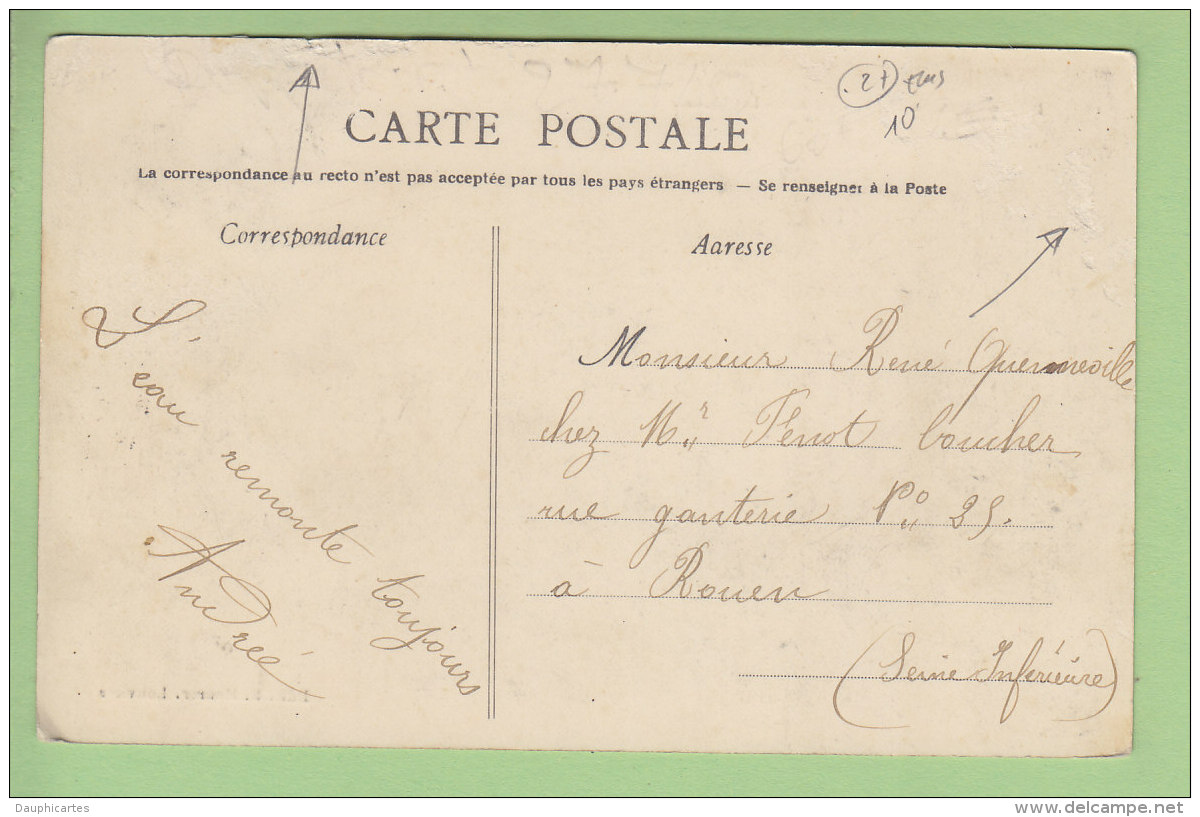 27 
10
CARTE POSTALE
La correspondance au recto n'est pas acceptée par tous les pays étrangers — Se renseigner à la Poste
Correspondance
Adresse
L'eau remonte toujours
Andrée
Monsieur René Quenneville
chez Mr Fenot boucher
rue ganterie No 25.
à Rouen
(Seine Inférieure)
Dauphicartes
www.delcampe.net